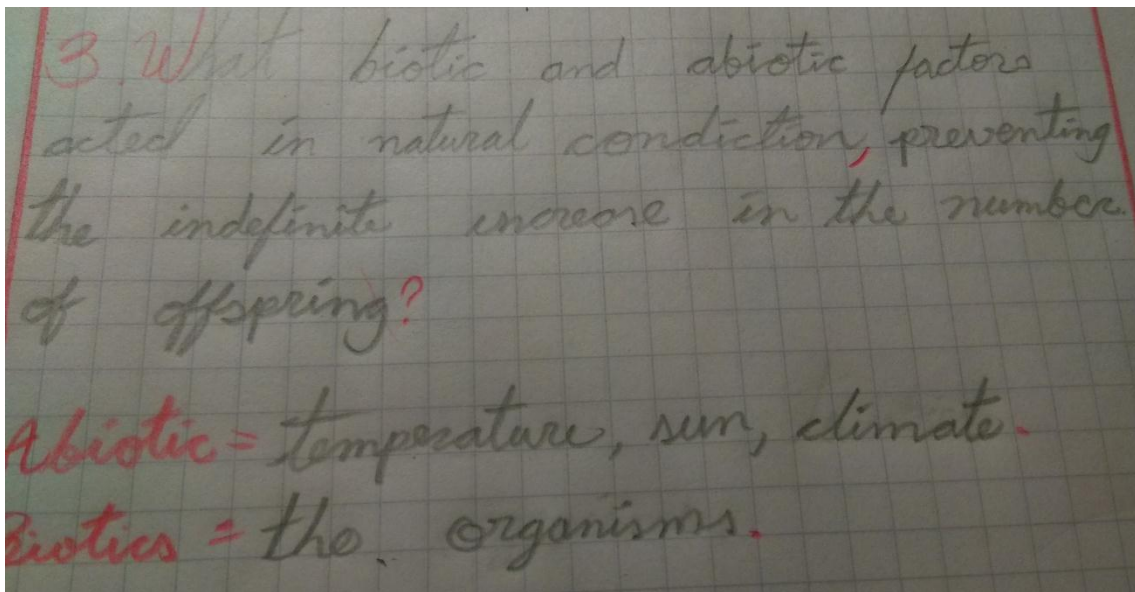 3. What biotic and abiotic factors
acted in natural condiction, preventing
the indefinite increase in the number
of offspring?
Abiotic = temperature, sun, climate.
Biotics = the organisms.